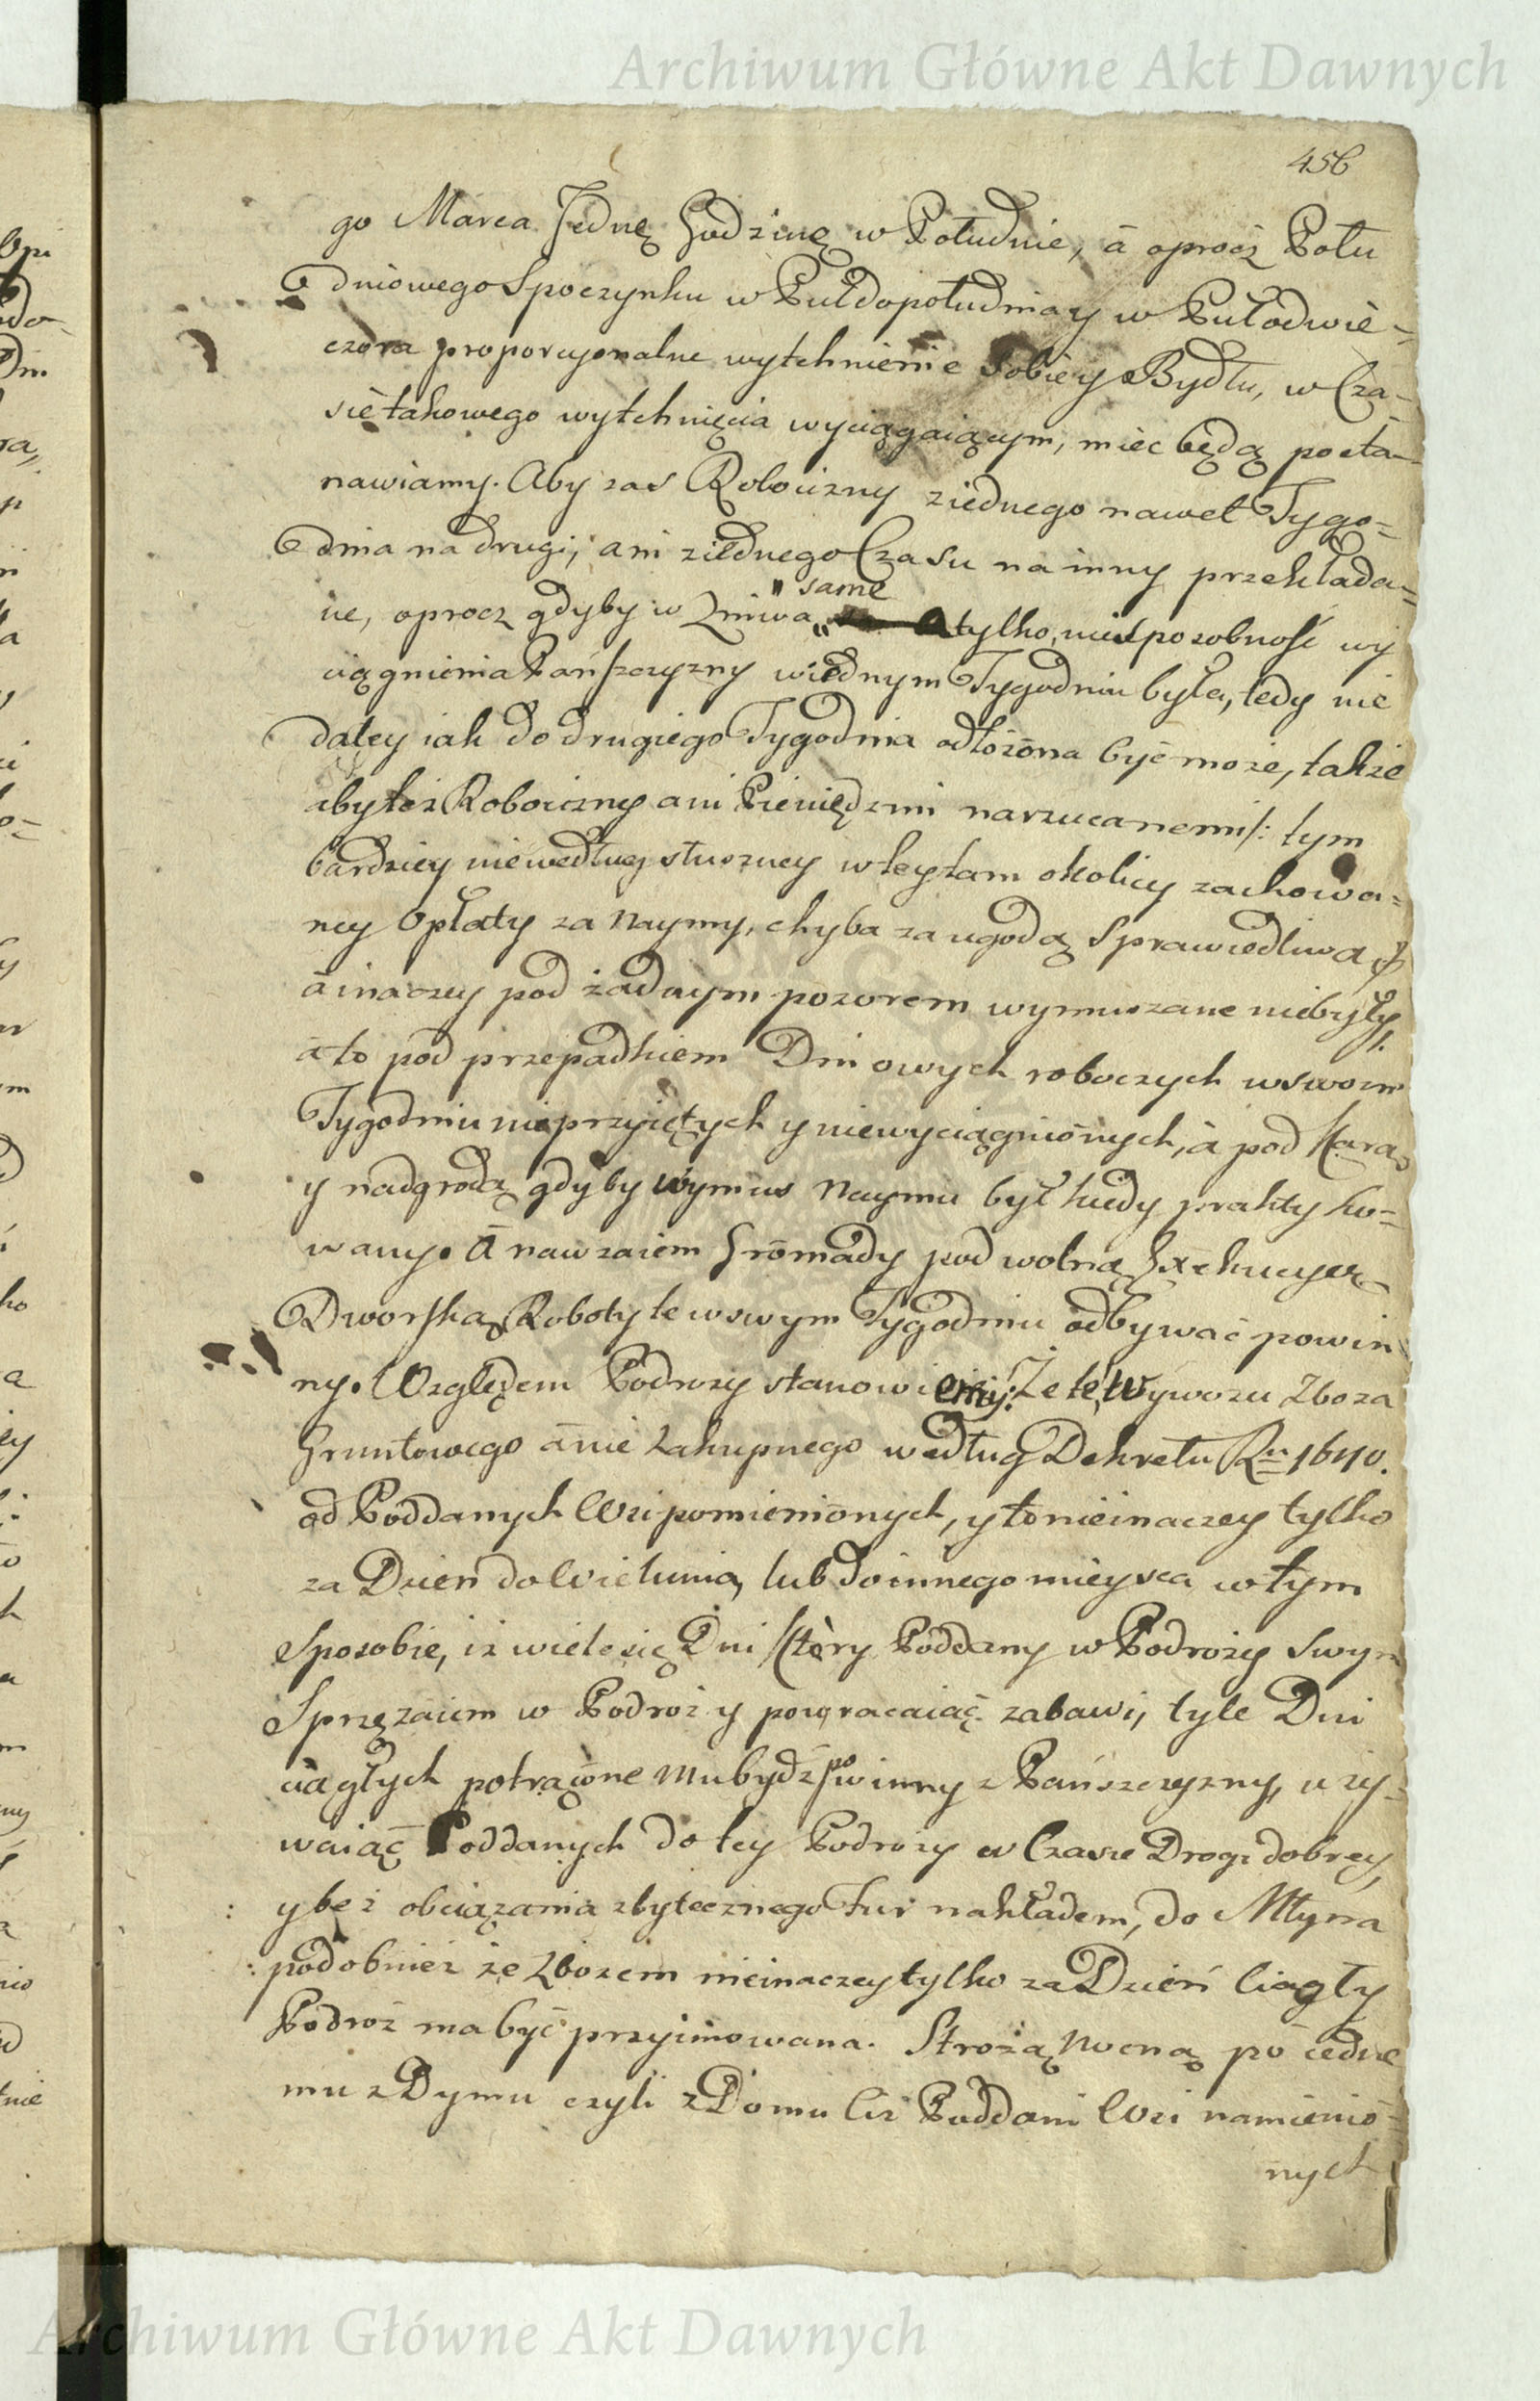 Archiwum Główne Akt Dawnych
456
go Marca Jednę Godzinę w Południe, á oprocz Połu
dniowego Spoczynku w Puł do południa y w Puł od wie=
czora proporcyonalne wytchnienie sobie y Bydłu, w Cza=
sie takowego wytchnięcia wyciągaiącym, miec będą posta=
nawiamy. Aby zas Robocizny z iednego nawet Tygo=
dnia na drugi, ani z iednego Czasu na inny przekłada=
ne, oprocz gdyby w Zniwa „ same
tylko niesposobność wy
ciągnienia Pańszczyzny w iednym Tygodniu była, tedy nie
daley iak do drugiego Tygodnia odłożona być może, także
aby też Robocizny ani Pieniędzmi narzucanemi /: tym
bardziey nie według słuszney w tey tam okolicy zachowa=
ney Opłaty za Naymy, chyba za ugodą Sprawiedliwą :/
á inaczey pod żadnym pozorem wymuszane nie były,
á to pod przepadkiem Dni owych roboczych w swoim
Tygodniu nie przyiętych y niewyciągnionych, á pod Karą
y nadgrodą gdyby wymus Naymu był kiedy praktyko=
wany. A nawzaiem Gromady pod wolną Exekucyą
Dworską Roboty te w swym Tygodniu odbywać powin
ny. Względem Podrozy stanowiemy: Ze te Wywozu Zboza
Gruntowego á nie zakupnego według Dekretu Ru 1640.
od Poddanych Wsi pomienionych, y to nie inaczey tylko
za Dzień do Wielunia, lub do innego mieysca w tym
Sposobie, iz wiele się Dni Ktory Poddany w Podroży swym
Sprzężaiem w Podroż y powracaiąc zabawi, tyle Dni
ciągłych potrącone mu bydź powinny z Pańszczyzny, uzy=
waiąc Poddanych do tey Podrozy w Czasie Drogi dobrey,
y bez obciązania zbytecznego Fur nakładem, do Młyna
podobnież ze Zbozem nie inaczey tylko za Dzień Ciągły
Podroż ma być przyimowana. Strożą Nocną po iedne
mu z Dymu czyli z Domu Ciż Poddani Wsi namienio=
nych
Archiwum Główne Akt Dawnych